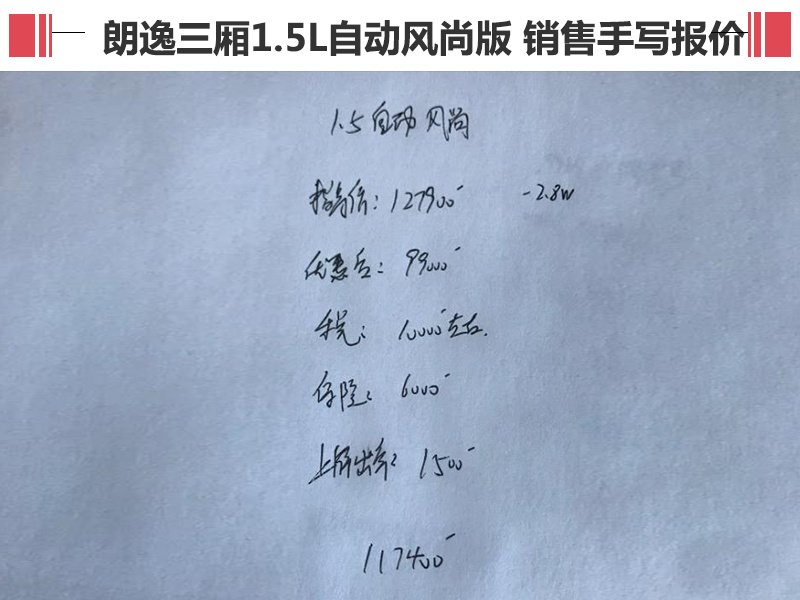 朗逸三厢1.5L自动风尚版 销售手写报价
1.5自动风尚
指导价: 127900- -2.8W
优惠后: 99000-
税: 10000-左右.
保险: 6000-
上牌出库: 1500-
117400-